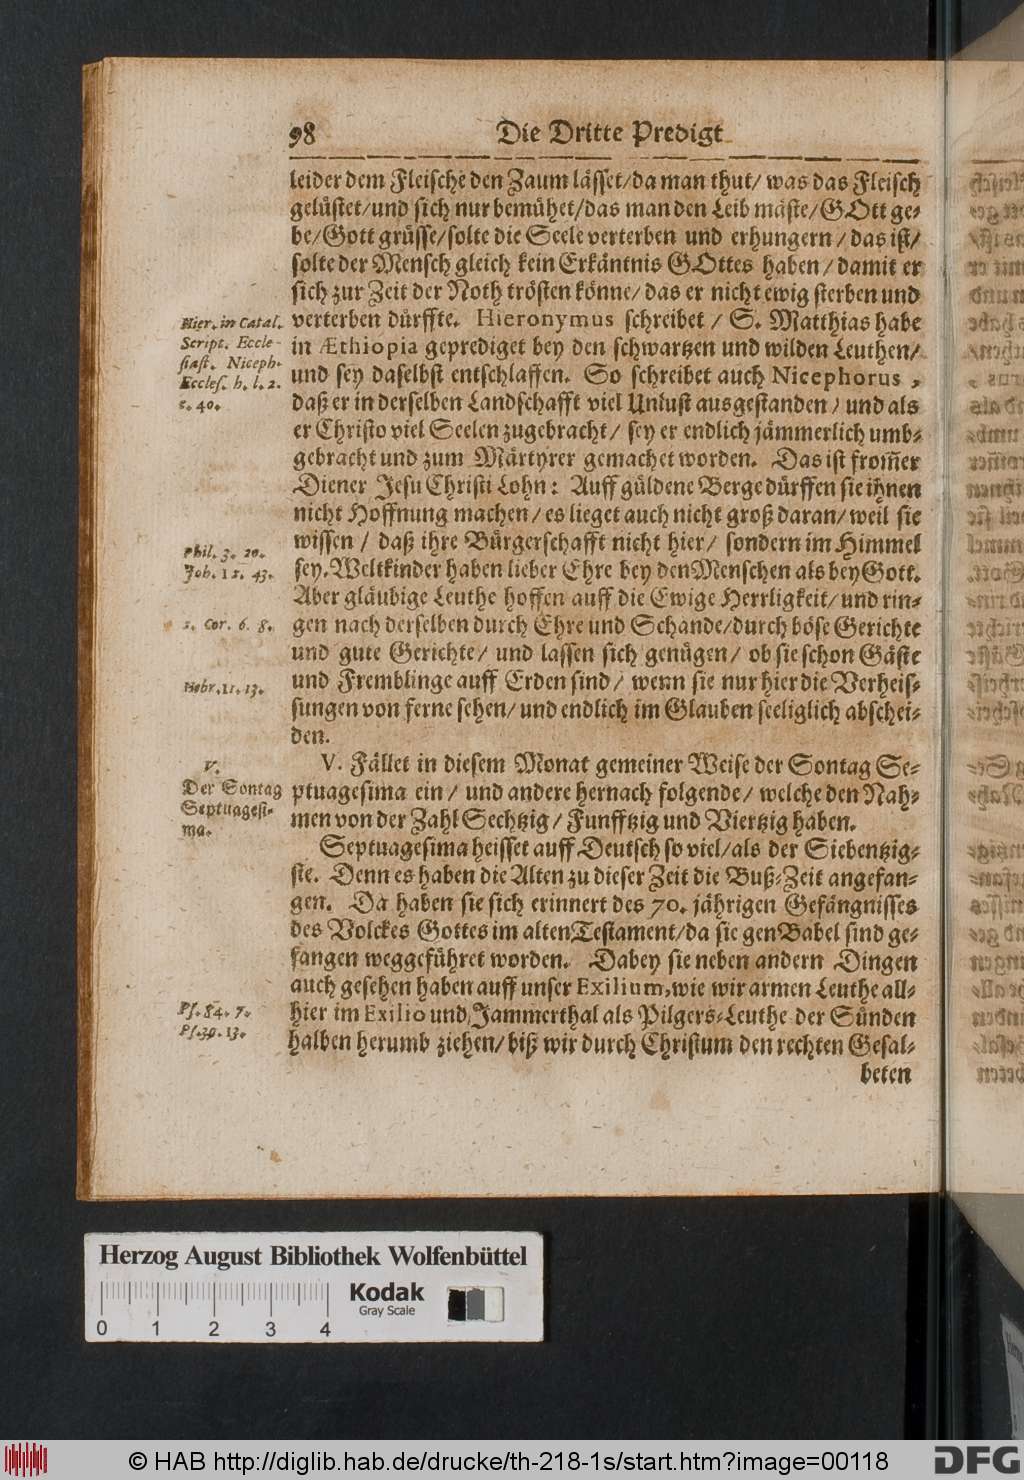 98 Die Dritte Predigt
leider dem Fleische den Zaum lässet/da man thut/ was das Fleisch
gelüstet/und sich nur bemühet/das man den Leib mäste/GOtt ge-
be/Gott grüsse/solte die Seele verterben und erhungern/das ist/
solte der Mensch gleich kein Erkäntnis GOttes haben/damit er
sich zur Zeit der Noth trösten könne/das er nicht ewig sterben und
verterben dürffte. Hieronymus schreibet/ S. Matthias habe
in Æthiopia geprediget bey den schwartzen und wilden Leuthen/
und sey daselbst entschlaffen. So schreibet auch Nicephorus,
daß er in derselben Landschafft viel Unlust ausgestanden/und als
er Christo viel Seelen zugebracht/ sey er endlich jämmerlich umb-
gebracht und zum Märtyrer gemachet worden. Das ist from̃er
Diener Jesu Christi Lohn: Auff güldene Berge dürffen sie ihnen
nicht Hoffnung machen/es lieget auch nicht groß daran/weil sie
wissen/ daß ihre Bürgerschafft nicht hier/ sondern im Himmel
sey. Weltkinder haben lieber Ehre bey den Menschen als bey Gott.
Aber gläubige Leuthe hoffen auff die Ewige Herrligkeit/und rin-
gen nach derselben durch Ehre und Schande/durch böse Gerichte
und gute Gerichte/ und lassen sich genügen/ ob sie schon Gäste
und Fremblinge auff Erden sind/ wenn sie nur hier die Verheis-
sungen von ferne sehen/und endlich im Glauben seeliglich abschei-
den.
V. Fället in diesem Monat gemeiner Weise der Sontag Se-
ptuagesima ein/ und andere hernach folgende/ welche den Nah-
men von der Zahl Sechtzig/ Funfftzig und Viertzig haben.
Septuagesima heisset auff Deutsch so viel/als der Siebentzig-
ste. Denn es haben die Alten zu dieser Zeit die Buß-Zeit angefan-
gen. Da haben sie sich erinnert des 70. jährigen Gefängnisses
des Volckes Gottes im alten Testament/da sie gen Babel sind ge-
fangen weggeführet worden. Dabey sie neben andern Dingen
auch gesehen haben auff unser Exilium, wie wir armen Leuthe all-
hier im Exilio und Jammerthal als Pilgers-Leuthe der Sünden
halben herumb ziehen/biß wir durch Christum den rechten Gesal-
beten
Hier. in Catal.
Script. Eccle-
siast. Niceph.
Eccles. h. l. 2.
c. 40.
Phil. 3. 20.
Joh. 12. 43.
2. Cor. 6. 8.
Hebr. 11. 13.
V.
Der Sontag
Septuagesi-
ma.
Ps. 84. 7.
Ps. 39. 13.
Herzog August Bibliothek Wolfenbüttel
Kodak
Gray Scale
0 1 2 3 4
© HAB http://diglib.hab.de/drucke/th-218-1s/start.htm?image=00118
DFG